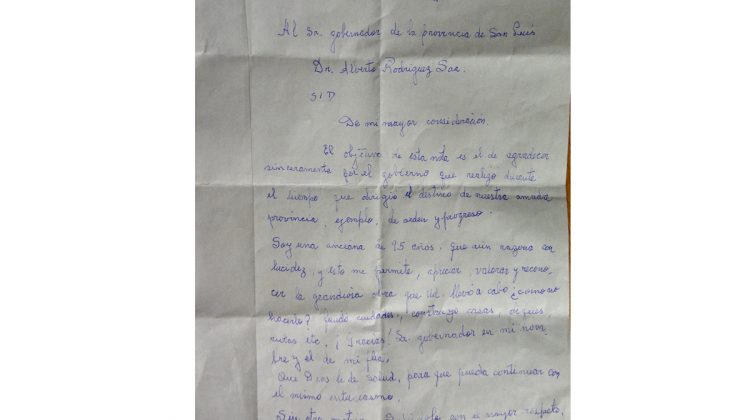 Al Sr. gobernador de la provincia de San Luis
Dr. Alberto Rodriguez Saa.
S/D
De mi mayor consideración.
El objetivo de esta nota es el de agradecer
sinceramente por el gobierno que realizó durante
el tiempo que dirigió el destino de nuestra amada
provincia, ejemplo, de orden y progreso.
Soy una anciana de 95 años. Que aún razona con
lucidez, y esto me permite, apreciar, valorar y recono-
cer la grandiosa obra que Ud. llevó a cabo ¿cómo no
hacerlo? fundó ciudades, construyó casas, diques,
rutas etc. ¡Gracias! Sr. gobernador en mi nom-
bre y el de mi flia.
Que Dios le de salud, para que pueda continuar con
el mismo entusiasmo.
Sin otro motivo con el mayor respeto,